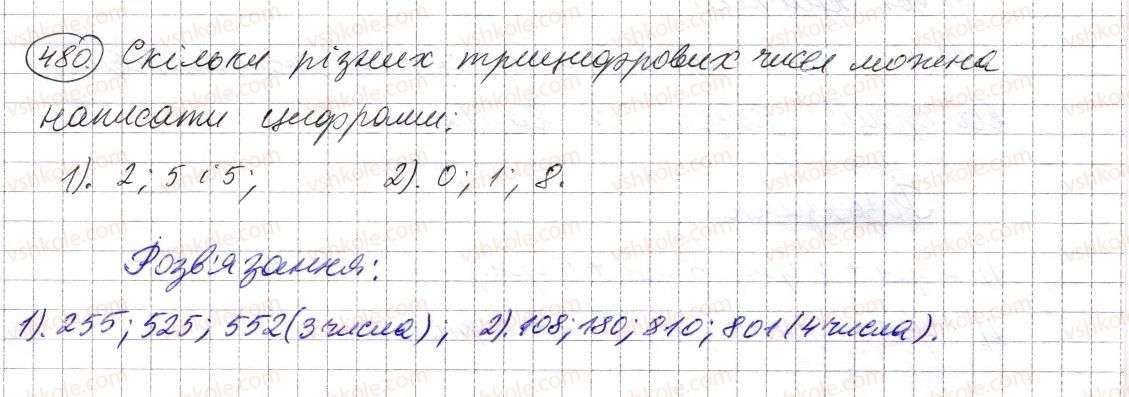 480. Скільки різних трицифрових чисел можна
написати цифрами:
1). 2; 5 і 5; 2). 0; 1; 8.
Розв'язання:
1). 255; 525; 552 (3 числа); 2). 108; 180; 810; 801 (4 числа).